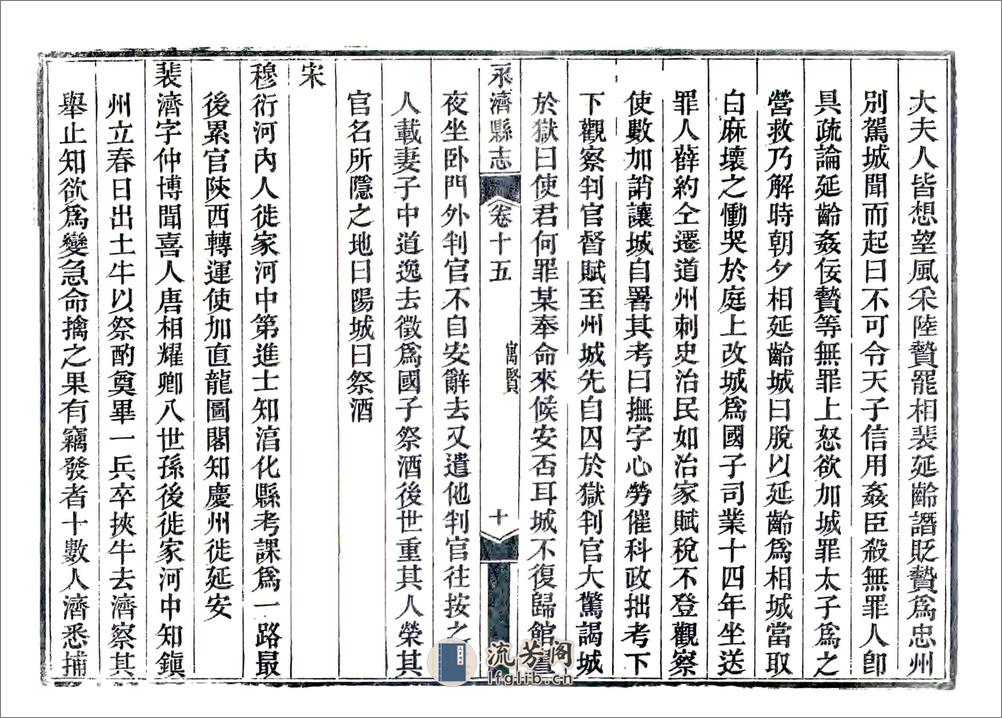 大夫人皆想望風采陸贄罷相裴延齡譖貶贄爲忠州
別駕城聞而起曰不可令天子信用姦臣殺無罪人卽
具疏論延齡姦佞贄等無罪上怒欲加城罪太子爲之
營救乃解時朝夕相延齡城曰脫以延齡爲相城當取
白麻壞之慟哭於庭上改城爲國子司業十四年坐送
罪人薛約仝遷道州刺史治民如治家賦稅不登觀察
使數加誚讓城自署其考曰撫字心勞催科政拙考下
下觀察判官督賦至州城先自囚於獄判官大驚謁城
於獄曰使君何罪某奉命來候安否耳城不復歸館
永濟縣志
卷十五
寓賢
十
夜坐卧門外判官不自安辭去又遣他判官往按之
人載妻子中道逸去徵爲國子祭酒後世重其人榮其
官名所隱之地曰陽城曰祭酒
宋
穆衍河內人徙家河中第進士知淯化縣考課爲一路最
後累官陝西轉運使加直龍圖閣知慶州徙延安
裴濟字仲博聞喜人唐相耀卿八世孫後徙家河中知鎭
州立春日出土牛以祭酌奠畢一兵卒挾牛去濟察其
舉止知欲爲變急命擒之果有竊發者十數人濟悉捕
流芳阁
lfglib.cn